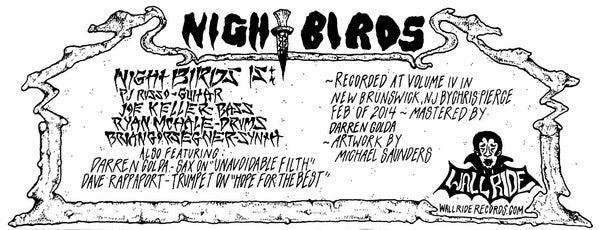 NIGHT BIRDS
NIGHT BIRDS IS:
PJ RUSSO - GUITAR
JOE KELLER - BASS
RYAN MCHALE - DRUMS
BRIAN GORSEGNER SYNTH
ALSO FEATURING:
DARREN GOLDA - SAX ON "UNAVOIDABLE FILTH"
DAVE RAPPAPORT - TRUMPET ON "HOPE FOR THE BEST"
~RECORDED AT VOLUME IV IN
NEW BRUNSWICK, NJ BY CHRIS PIERCE
FEB OF 2014 ~ MASTERED BY
DARREN GOLDA
~ARTWORK BY
MICHAEL SAUNDERS
WALLRIDE
WALLRIDERECORDS.COM